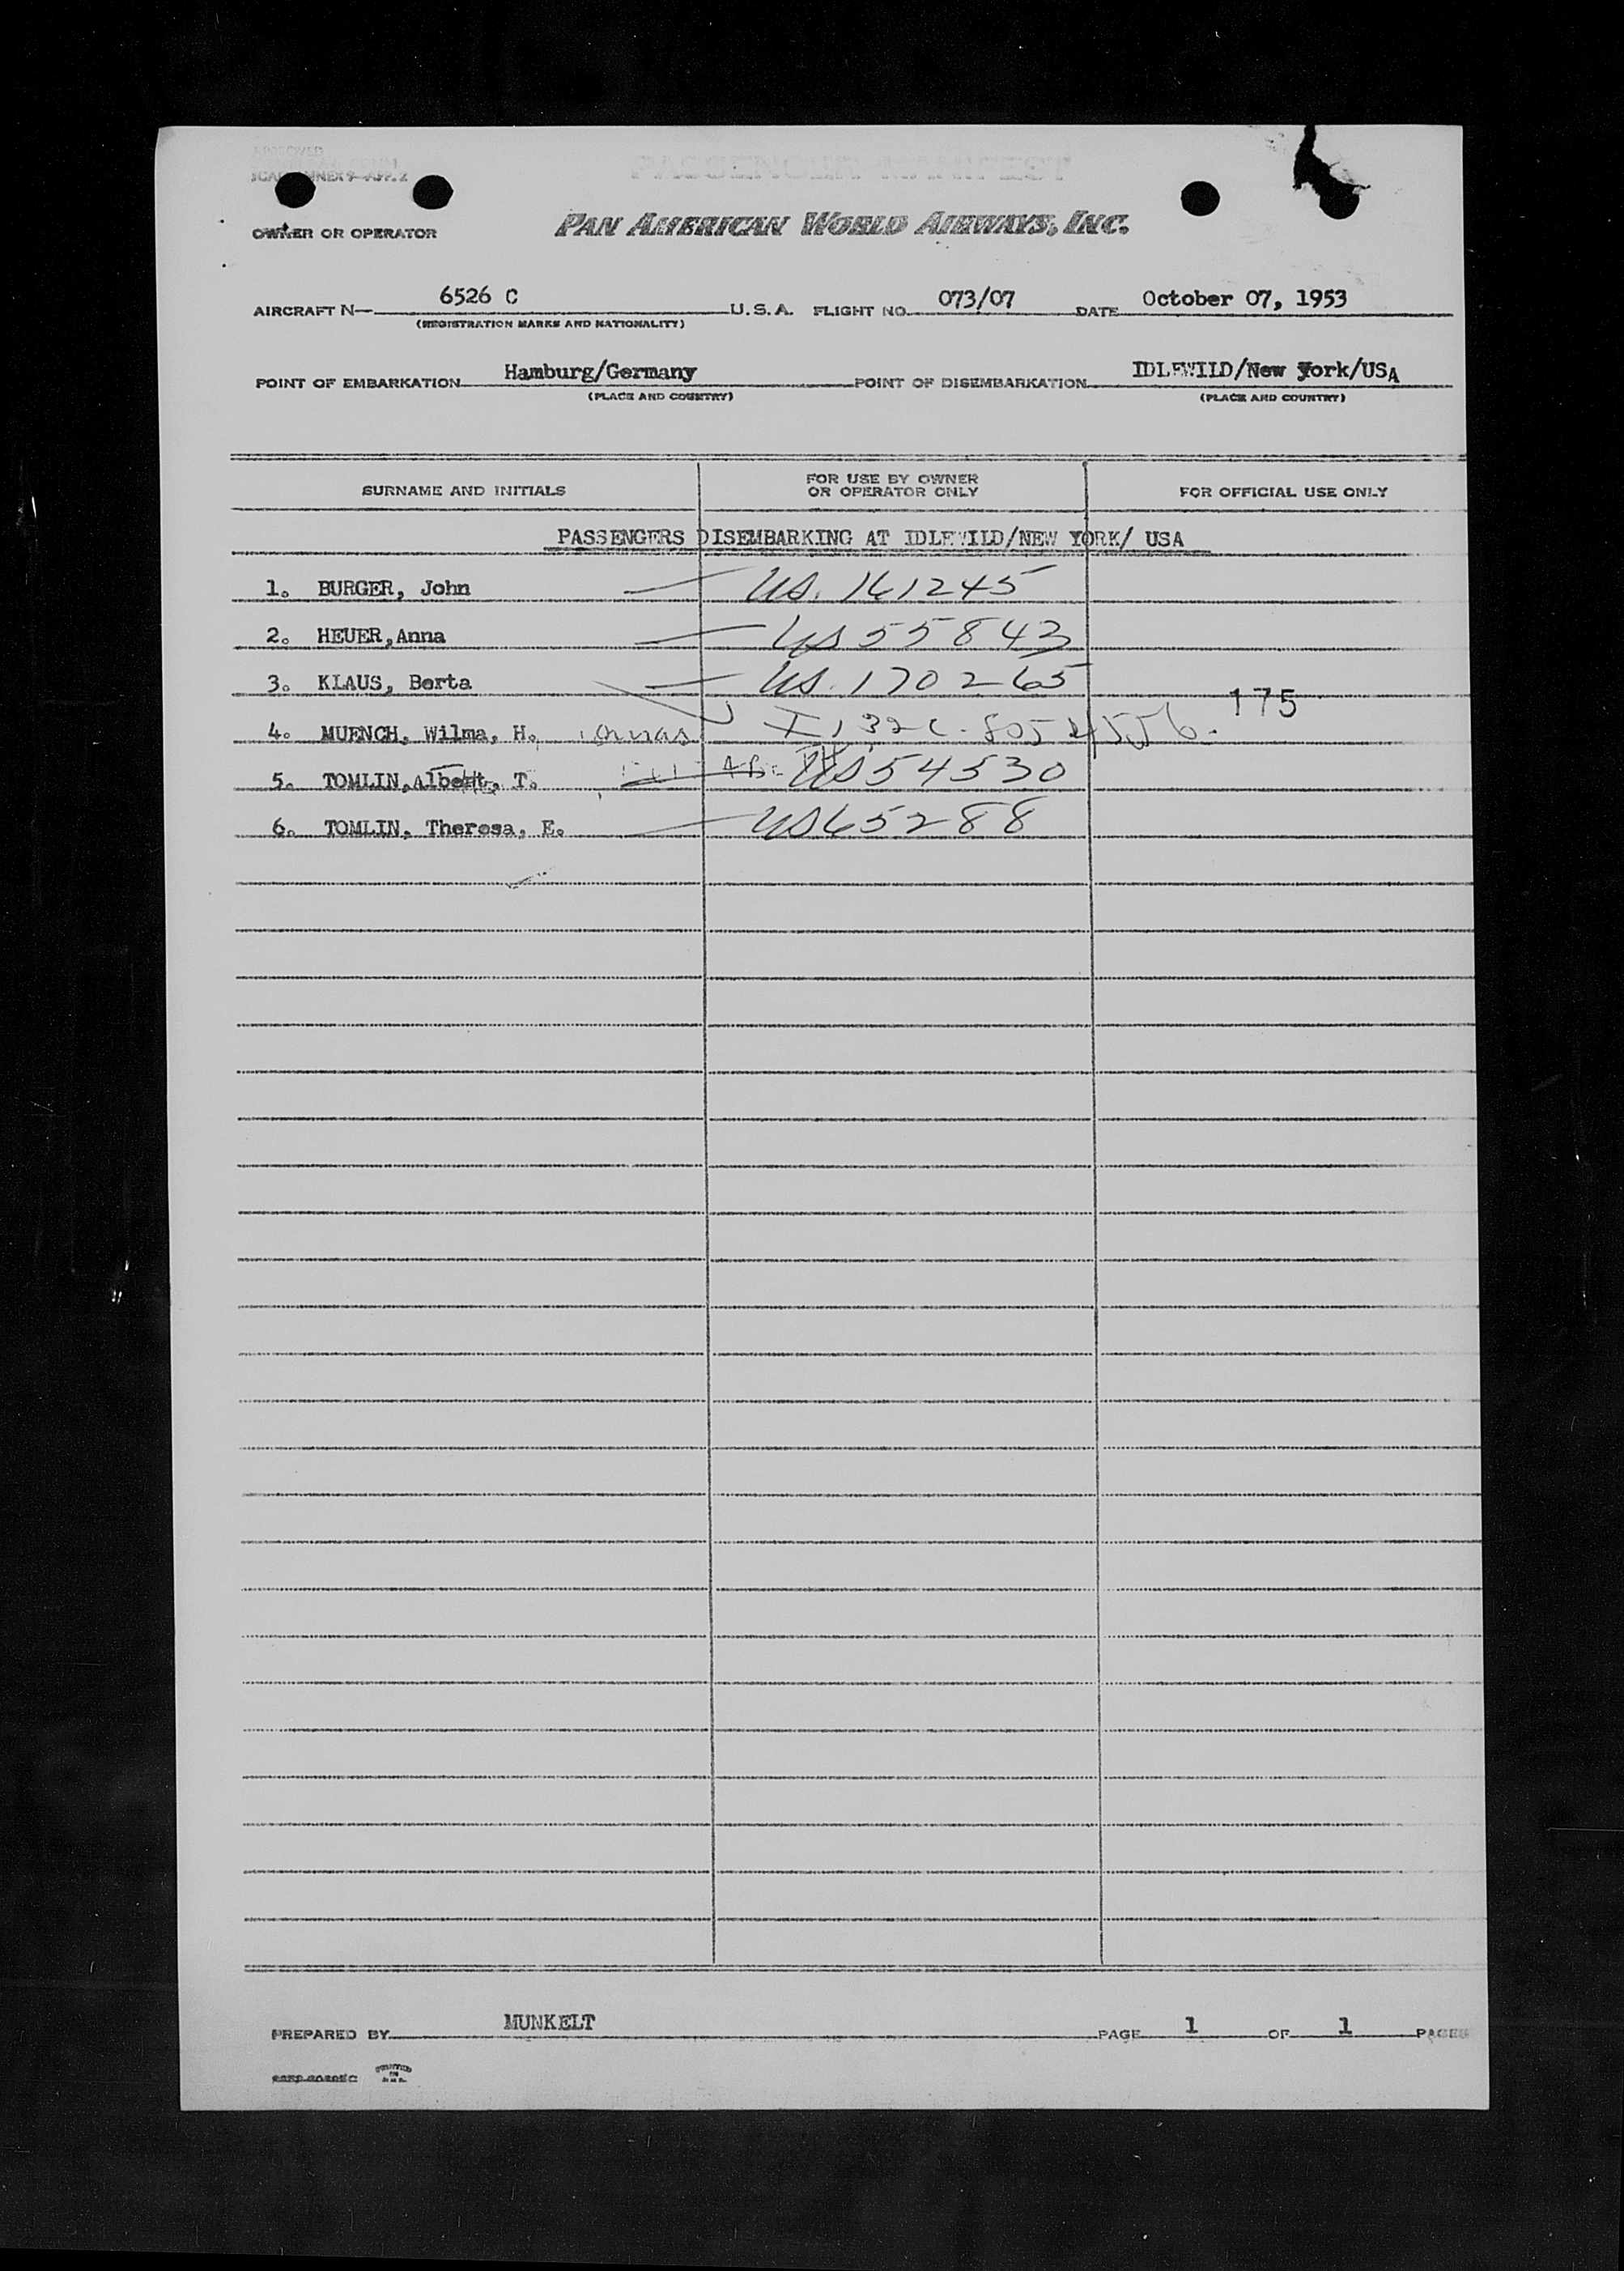 APPROVED
PASSENGER MANIFEST
OWNER OR OPERATOR PAN AMERICAN WORLD AIRWAYS, INC.
AIRCRAFT N— 6526 C U.S.A. FLIGHT NO. 073/07 DATE October 07, 1953
(REGISTRATION MARKS AND NATIONALITY)
POINT OF EMBARKATION Hamburg/Germany POINT OF DISEMBARKATION IDLEWILD/New York/USA
(PLACE AND COUNTRY) (PLACE AND COUNTRY)
SURNAME AND INITIALS FOR USE BY OWNER OR OPERATOR ONLY FOR OFFICIAL USE ONLY
PASSENGERS DISEMBARKING AT IDLEWILD/NEW YORK/ USA
1. BURGER, John US. 161245
2. HEUER, Anna US 55843
3. KLAUS, Berta US. 170265
175
4. MUENCH, Wilma, H.
5. TOMLIN, Albert, T. US 54530
6. TOMLIN, Theresa, E. US 65288
PREPARED BY MUNKELT PAGE 1 OF 1 PAGES
PRINTED IN U.S.A.